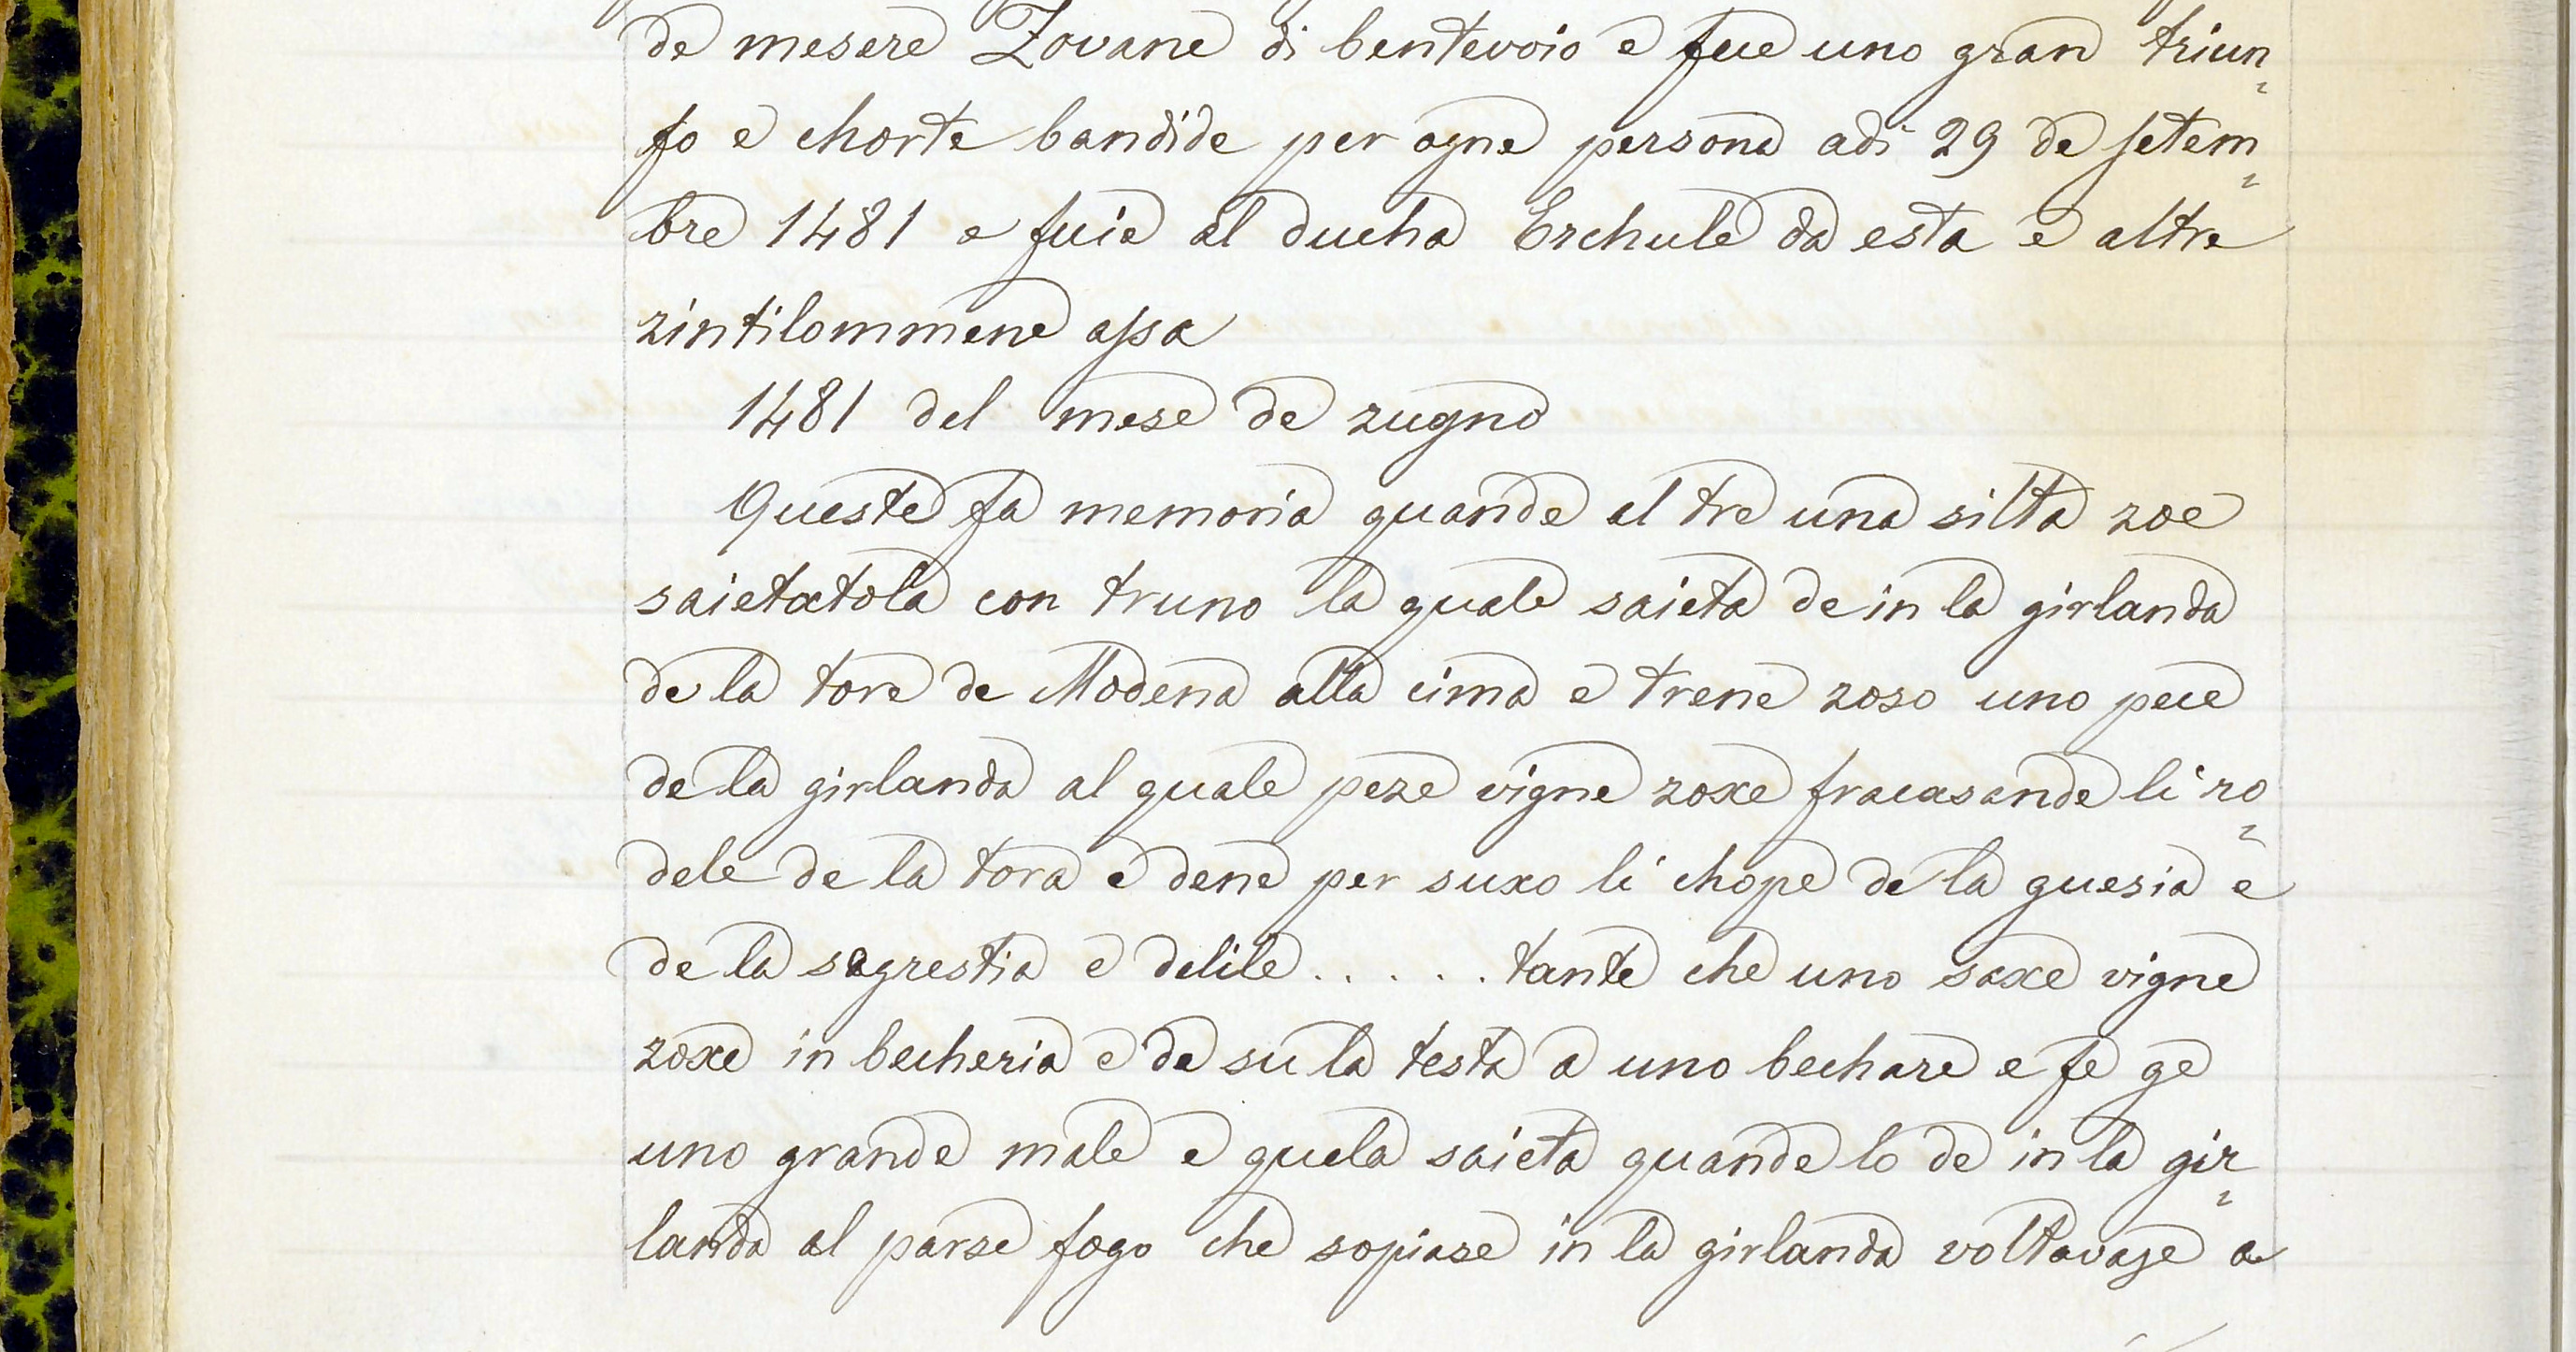 de mesere Zovane di bentevoio e fue uno gran triun=
fo e chorte bandide per ogne persona adi 29 de setem=
bre 1481 e fuie al ducha Erchule da esta e altre
zintilommene assa
1481 del mese de zugno
Queste fa memoria quande al tre una silta zoe
saietatola con truno la quale saieta de in la girlanda
de la tore de Modena alla cima e trene zoso uno pece
de la girlanda al quale peze vigne zoxe fracasande li ro=
dele de la tora e dene per suxo li chope de la guesia e
de la sagrestia e delile . . . . . tante che uno saxe vigne
zoxe in becheria e de su la testa a uno bechare e fe ge
uno grande male e quela saieta quande lo de in la gir=
landa al parse fogo che sopiase in la girlanda voltavase a